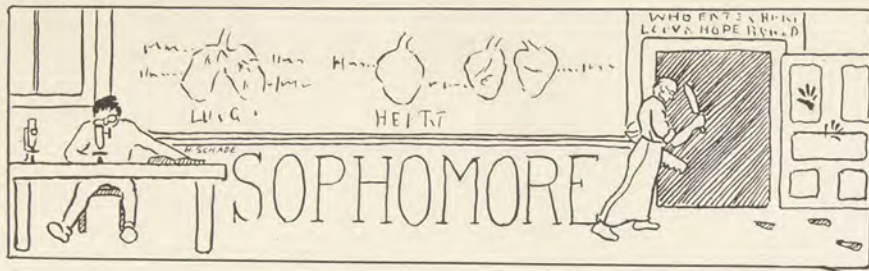 WHO ENTERS HERE
LEAVE HOPE BEHIND
LUNG
HEART
H. SCHADE
SOPHOMORE